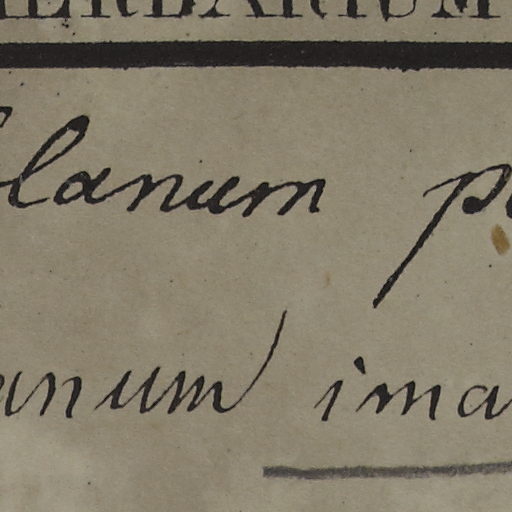 HERBARIUM
lanum p
anum) ima